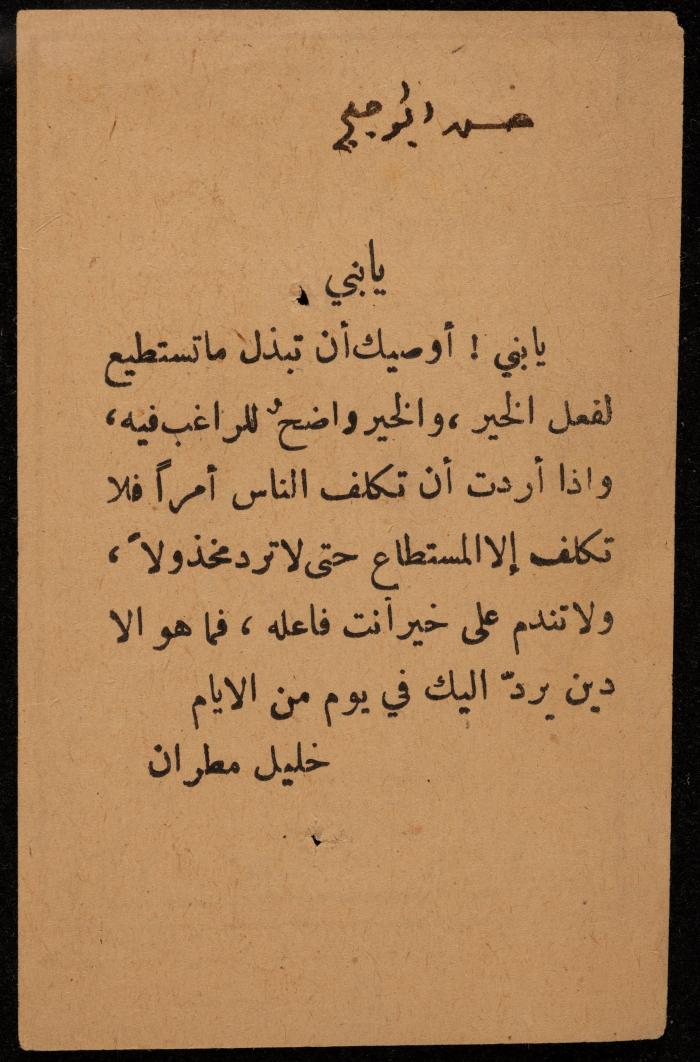 حسن ابو جبلي
يابني
يابني ! أوصيك أن تبذل ماتستطيع
لفعل الخير ، والخير واضحٌ للراغب فيه ،
واذا أردت أن تكلف الناس أمراً فلا
تكلف إلا المستطاع حتى لا ترد مخذولاً ،
ولا تندم على خير أنت فاعله ، فما هو الا
دين يردّ اليك في يوم من الايام
خليل مطران